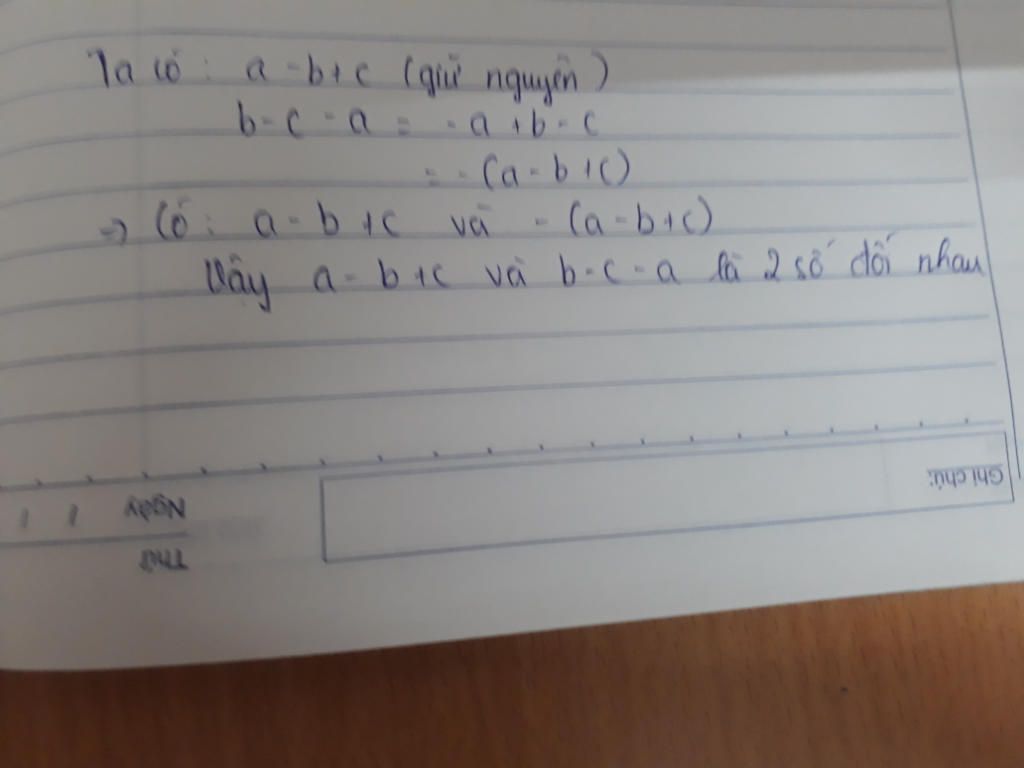 Ta có: a - b + c (giữ nguyên)
b - c - a = - a + b - c
= - (a - b + c)
=> Có: a - b + c và - (a - b + c)
Vậy a - b + c và b - c - a là 2 số đối nhau
Ghi chú:
Ngày / /
Thứ